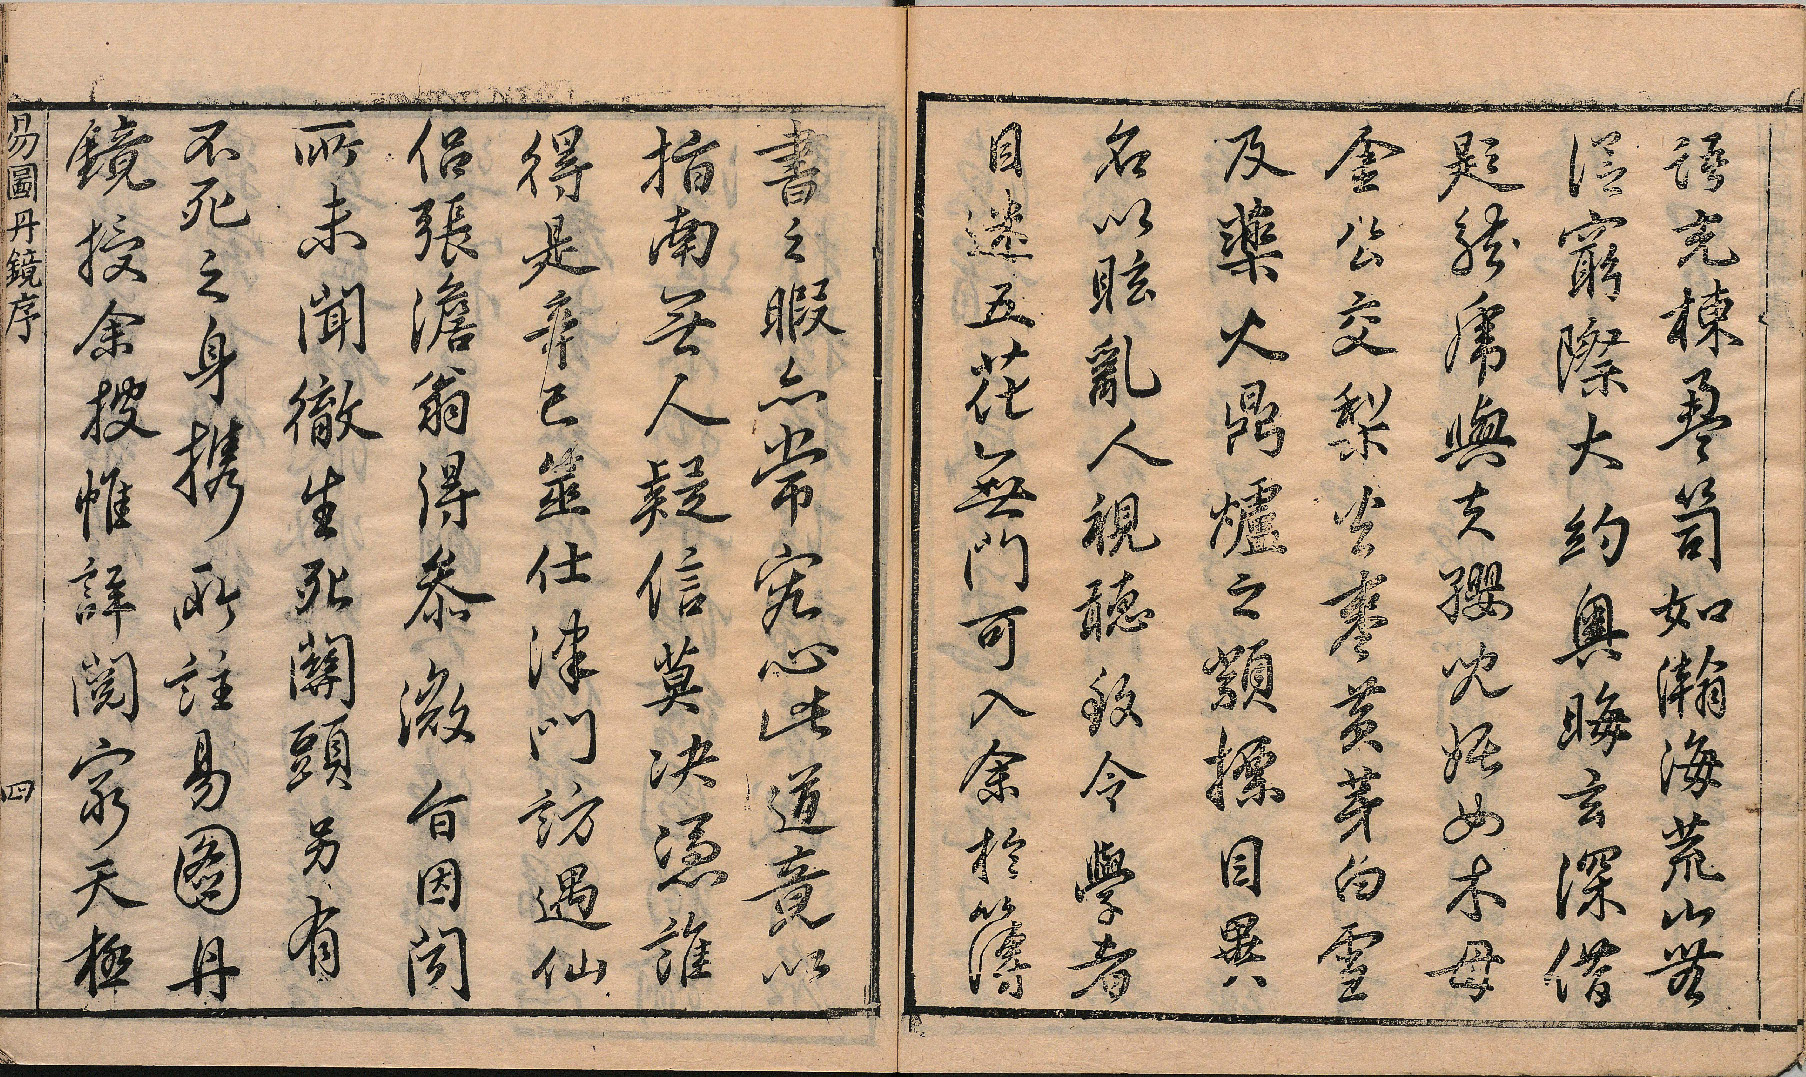 語充棟盈笥如瀚海荒山無
從窮際大約奧晦玄深借
題龍虎與夫嬰兒姹女木母
金公交梨火棗黃芽白雪
及藥火鼎爐之類摽目異
名以眩亂人視聽致令學者
目迷五花無門可入余於簿
書之暇亦常究心此道竟以
指南無人疑信莫決憑誰
得是辛巳筮仕津門訪遇仙
侶張澹翁得參微旨因聞
所未聞徹生死關頭另有
不死之身攜所註易圖丹
鏡授余披帷詳閱家天極
易圖丹鏡序
四